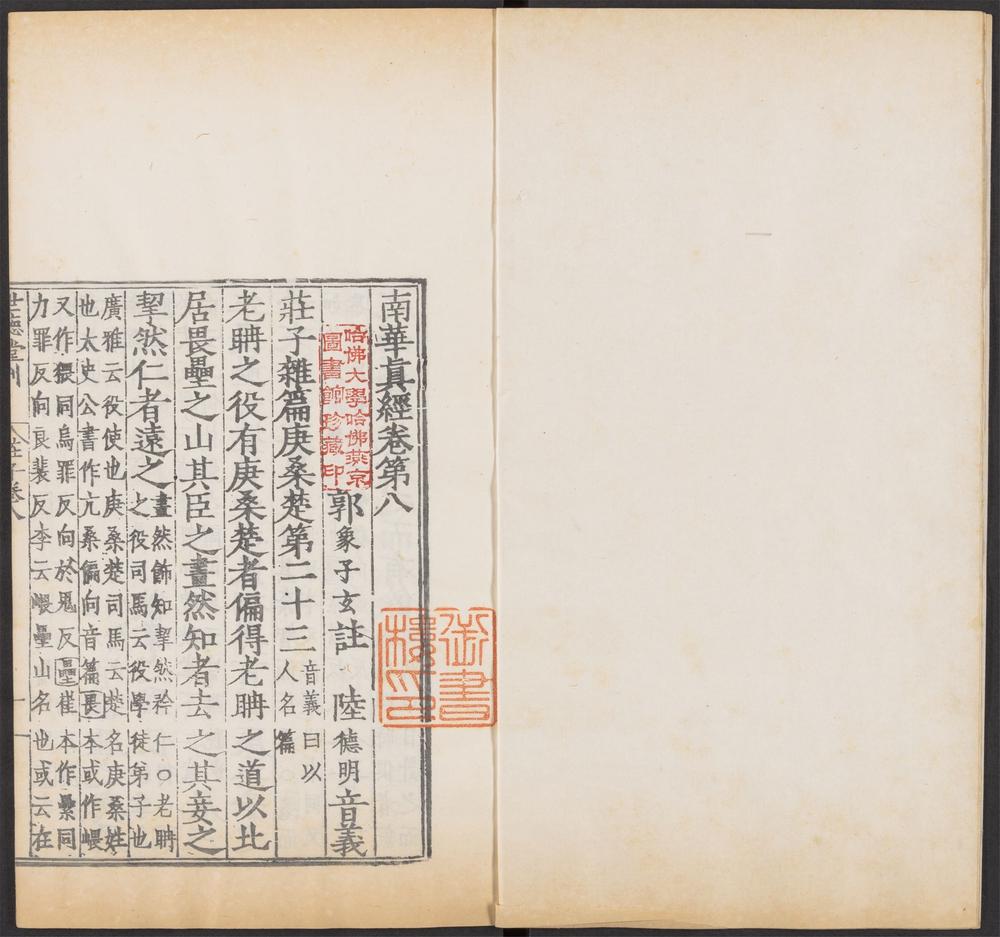 南華真經卷第八
郭象子玄註　陸德明音義
莊子雜篇庚桑楚第二十三
音義曰以
人名篇
老聃之役有庚桑楚者偏得老聃之道以北
居畏壘之山其臣之畫然知者去之其妾之
挈然仁者遠之
畫然飾知挈然矜仁○老聃
之役司馬云役學徒弟子也
廣雅云役使也庚桑楚司馬云楚名庚桑姓
也太史公書作亢桑偏向音篇畏本或作嵔
又作猥同烏罪反向於鬼反壘崔本作纍同
力罪反向良裴反李云嵔壘山名也或云在
世德堂刊
莊子卷八
一
哈佛大學哈佛燕京
圖書館珍藏印
御書
樓印